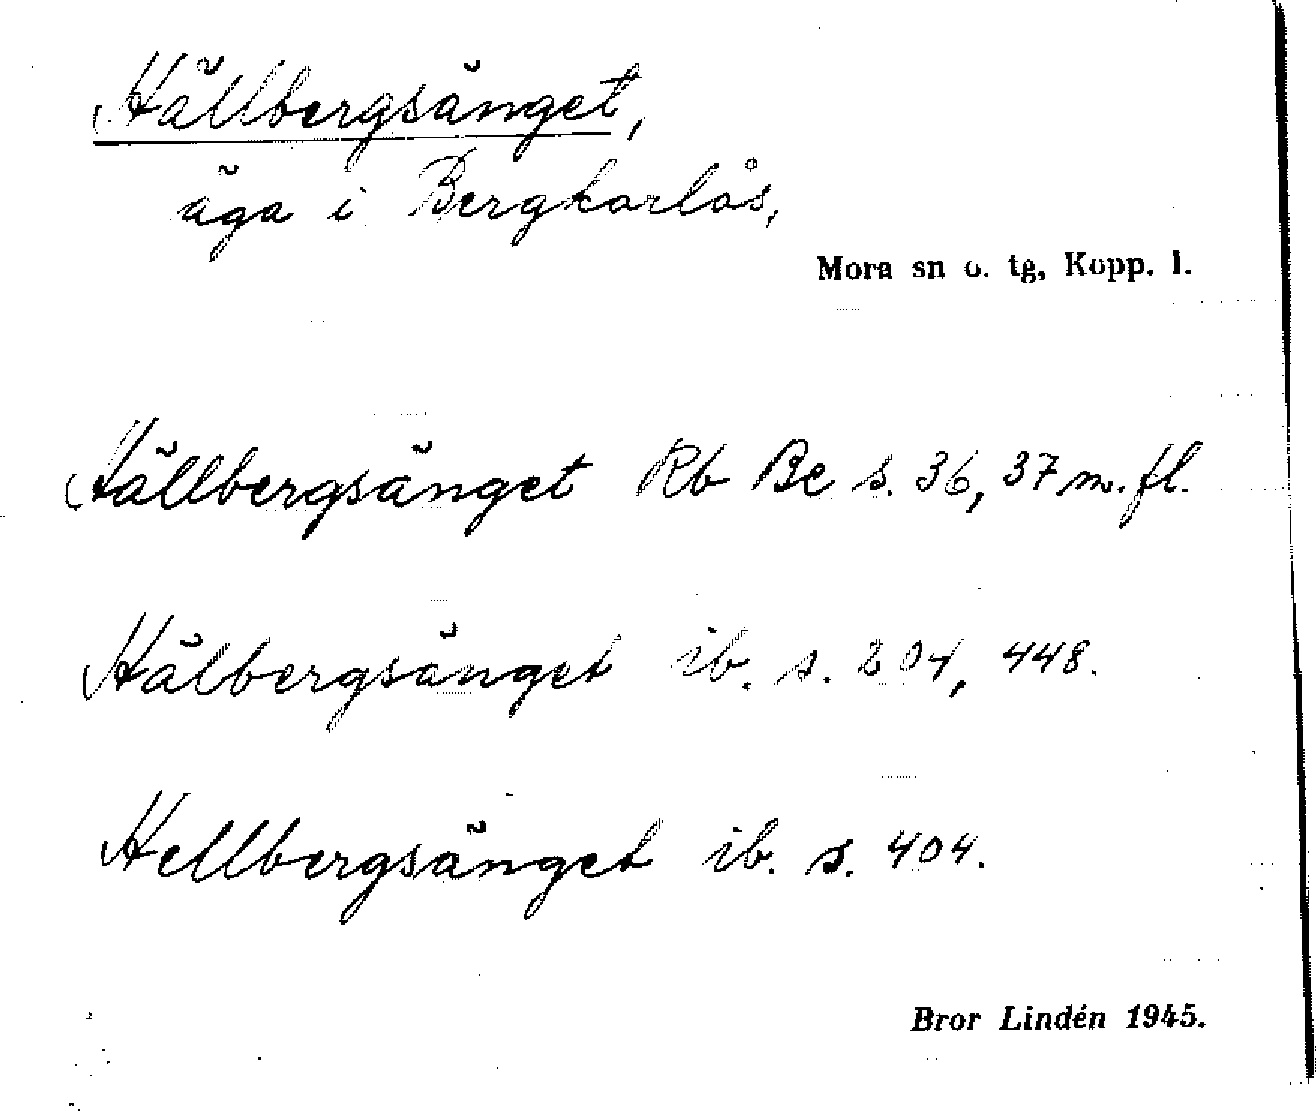 Hällbergsänget,
äga i Bergkarlås,
Mora sn o. tg, Kopp. l.
Hällbergsänget Rb Be s. 36, 37 m. fl.
Hälbergsänget ib. s. 204, 448.
Hellbergsänget ib. s. 404.
Bror Lindén 1945.